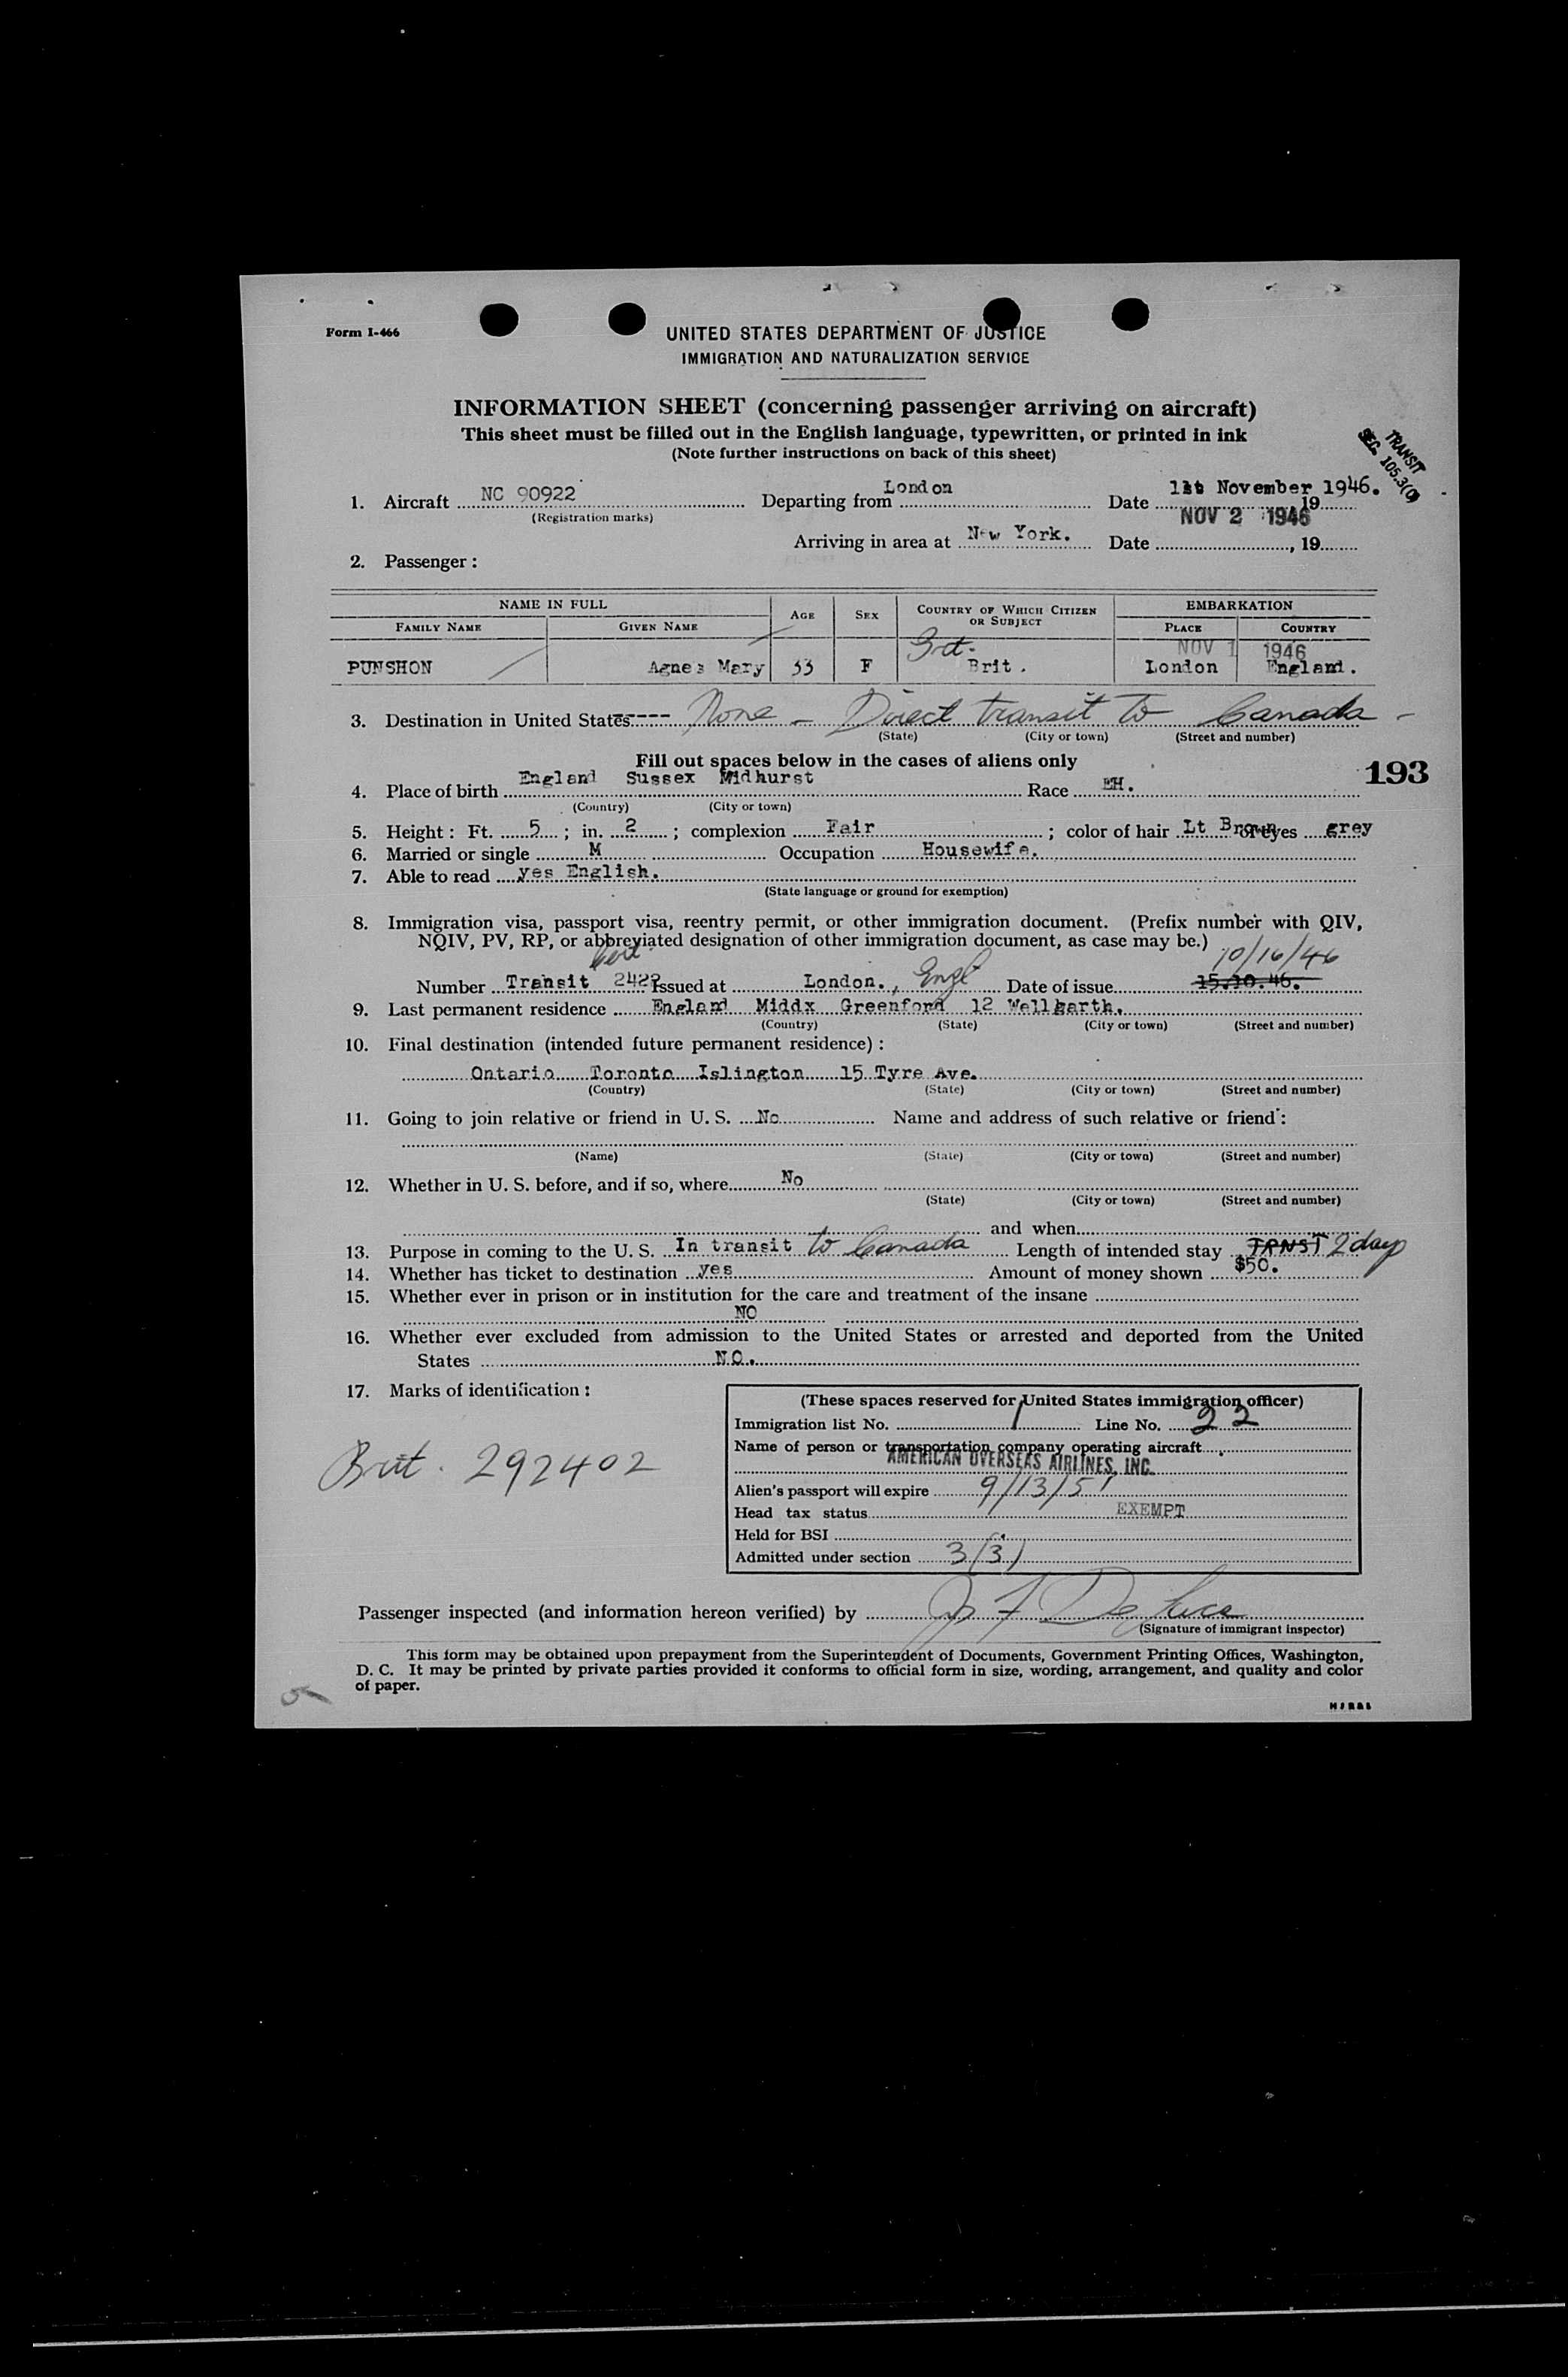 Form I-466
UNITED STATES DEPARTMENT OF JUSTICE
IMMIGRATION AND NATURALIZATION SERVICE
INFORMATION SHEET (concerning passenger arriving on aircraft)
This sheet must be filled out in the English language, typewritten, or printed in ink
(Note further instructions on back of this sheet)
TRANSIT
SEC. 105.3(C)
1. Aircraft NC 90922 Departing from London Date 1st November 1946. 19
(Registration marks)
NOV 2 1946
Arriving in area at New York. Date , 19
2. Passenger :
NAME IN FULL AGE SEX COUNTRY OF WHICH CITIZEN OR SUBJECT EMBARKATION
FAMILY NAME GIVEN NAME PLACE COUNTRY
Brt. NOV 1 1946
PUNSHON Agnes Mary 33 F Brit. London England.
3. Destination in United States ---- None - Direct transit to Canada -
(State) (City or town) (Street and number)
Fill out spaces below in the cases of aliens only
193
4. Place of birth England Sussex Midhurst Race EH.
(Country) (City or town)
5. Height : Ft. 5 ; in. 2 ; complexion Fair ; color of hair Lt Brown of eyes grey
6. Married or single M Occupation Housewife.
7. Able to read yes English.
(State language or ground for exemption)
8. Immigration visa, passport visa, reentry permit, or other immigration document. (Prefix number with QIV,
NQIV, PV, RP, or abbreviated designation of other immigration document, as case may be.)
Cert. 10/16/46
Number Transit 2422 Issued at London., Engl Date of issue 15.10.46.
9. Last permanent residence England Middx Greenford 12 Wellgarth.
(Country) (State) (City or town) (Street and number)
10. Final destination (intended future permanent residence) :
Ontario Toronto Islington 15 Tyre Ave.
(Country) (State) (City or town) (Street and number)
11. Going to join relative or friend in U. S. No Name and address of such relative or friend :
(Name) (State) (City or town) (Street and number)
12. Whether in U. S. before, and if so, where No
(State) (City or town) (Street and number)
and when
13. Purpose in coming to the U. S. In transit to Canada Length of intended stay TRNST 2 days
14. Whether has ticket to destination yes Amount of money shown $50.
15. Whether ever in prison or in institution for the care and treatment of the insane
NO
16. Whether ever excluded from admission to the United States or arrested and deported from the United
States NO.
17. Marks of identification :
Brit. 292402
(These spaces reserved for United States immigration officer)
Immigration list No. 1 Line No. 22
Name of person or transportation company operating aircraft
AMERICAN OVERSEAS AIRLINES, INC.
Alien's passport will expire 9/13/51
Head tax status EXEMPT
Held for BSI
Admitted under section 3(3)
Passenger inspected (and information hereon verified) by
(Signature of immigrant inspector)
This form may be obtained upon prepayment from the Superintendent of Documents, Government Printing Offices, Washington,
D. C. It may be printed by private parties provided it conforms to official form in size, wording, arrangement, and quality and color
of paper.